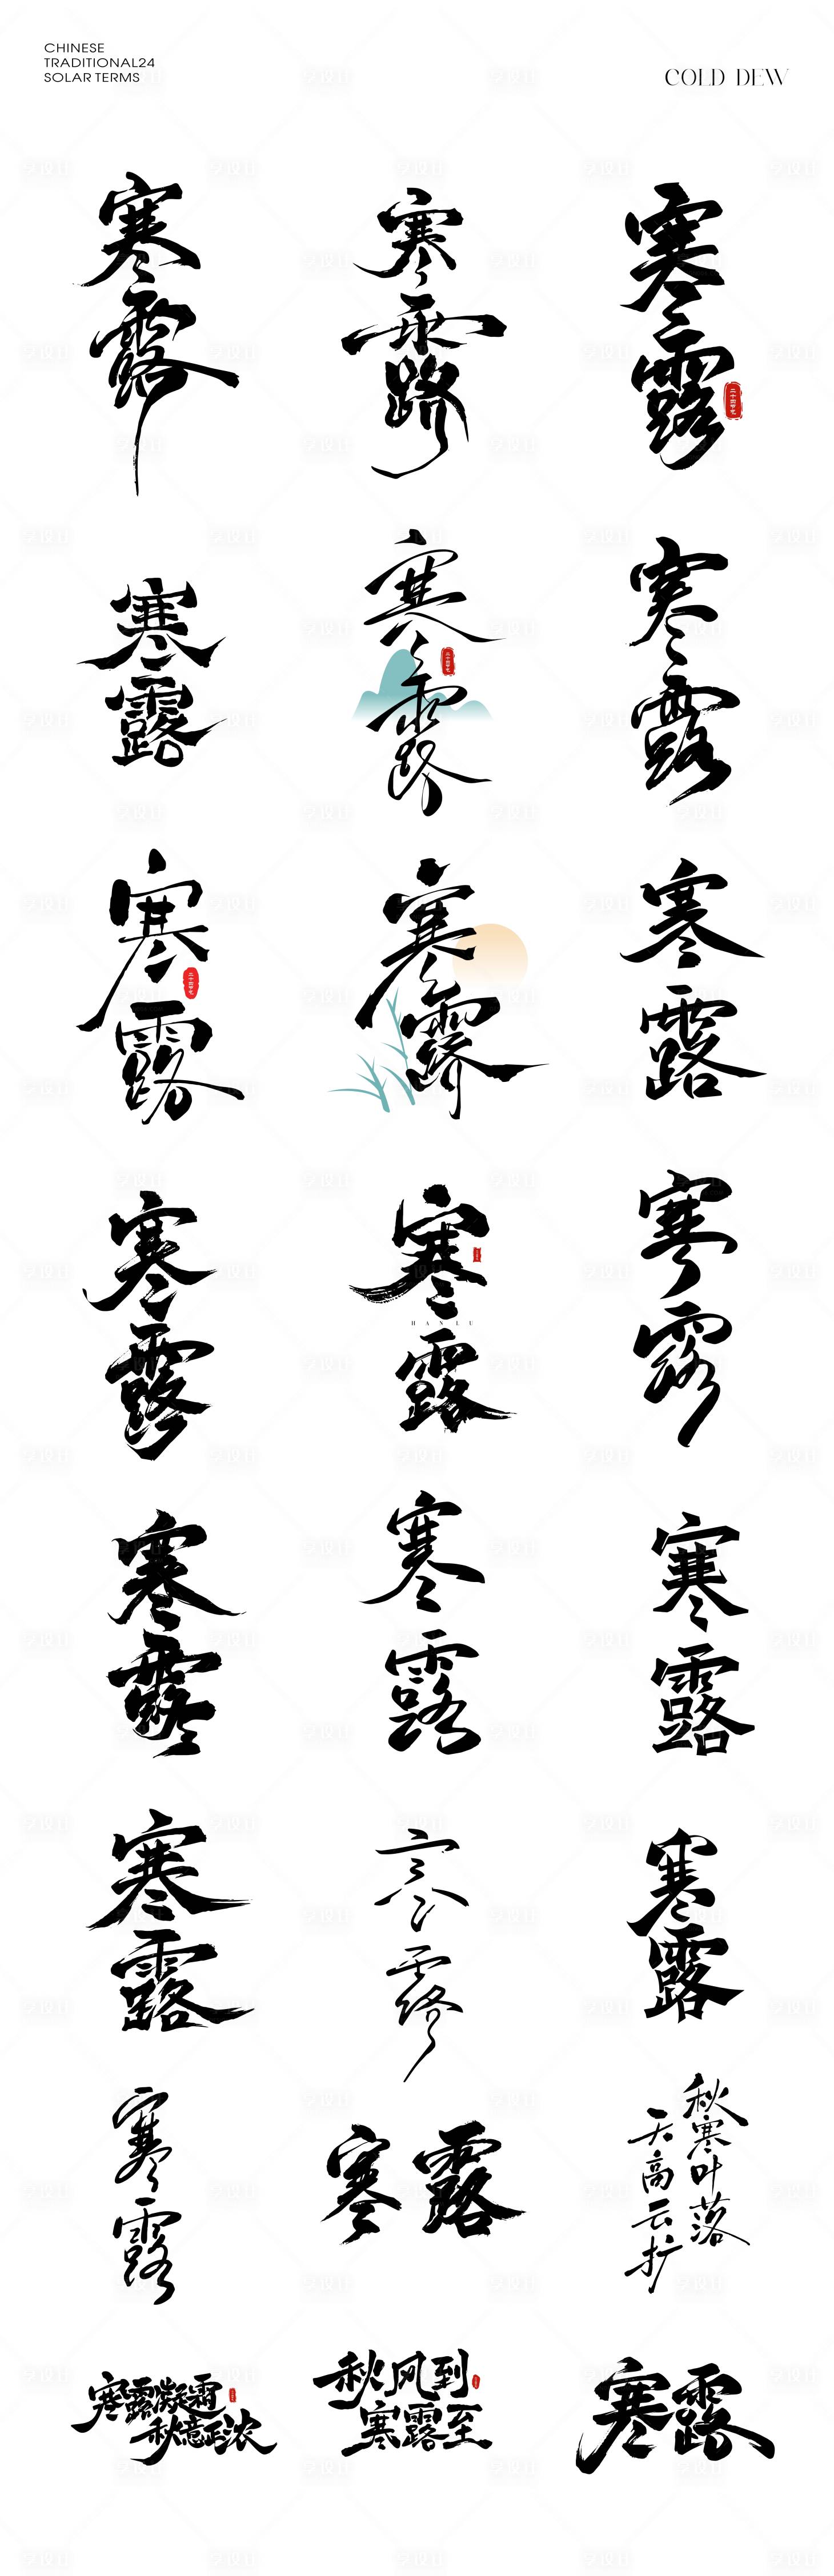 CHINESE
TRADITIONAL24
SOLAR TERMS
COLD DEW
寒露
寒露
寒露
二十四节气
寒露
寒露
二十四节气
寒露
寒露
二十四节气
寒露
寒露
寒露
寒露
HANLU
寒露
寒露
寒露
寒露
寒露
寒露
寒露
寒露
寒露
秋寒叶落
天高云扩
寒露凝霜
秋意正浓
秋风到
寒露至
寒露